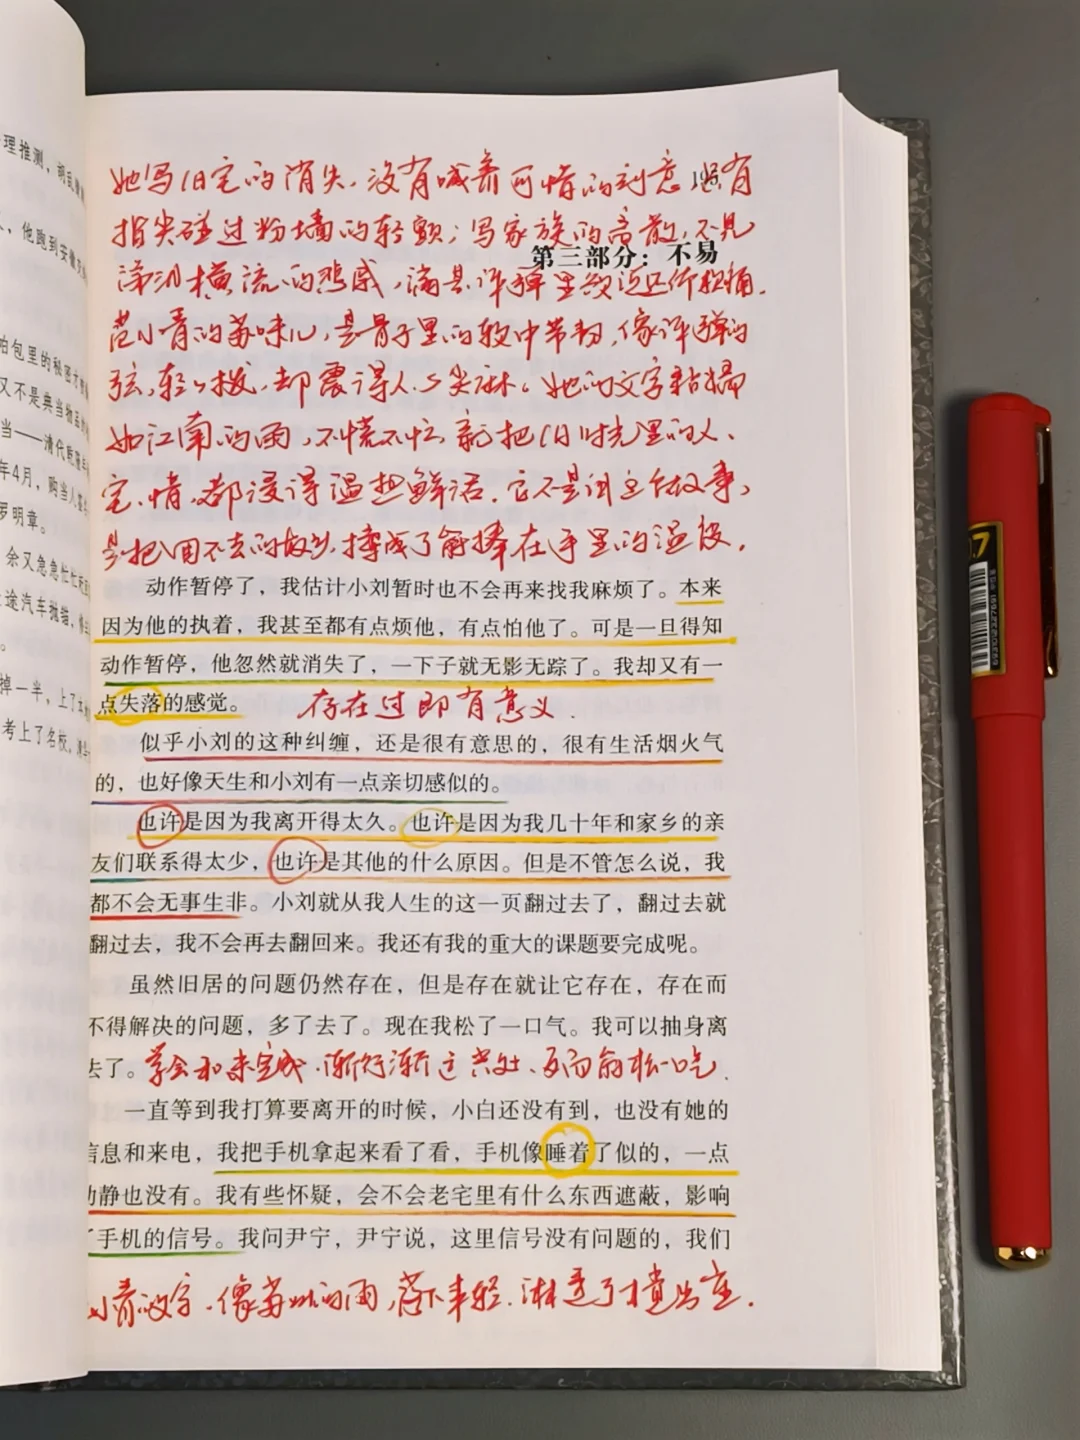 理推测，胡乱
，他跑到安徽
帕包里的秘密才
又不是典当物品的
当——清代乾隆年
年4月，购当人
罗明章。
余又急急忙忙
途汽车抛锚，
掉一半，上了
考上了名校，
她写旧宅的消失，没有喊着可惜的刻意，只有
指尖碰过粉墙的轻颤；写家族的离散，不见
涕泪横流的悲戚，满是评弹里
范小青的苏味儿，是骨子里的软中带韧，像评弹的
弦，轻轻拨，却震得人心尖麻。她的文字
如江南的雨，不慌不忙，就把旧时光里的人、
宅、情，都浸得温热鲜活。它不是讲这个故事，
是把回不去的故乡，揉成了能捧在手里的温度。
第三部分：不易
动作暂停了，我估计小刘暂时也不会再来找我麻烦了。本来
因为他的执着，我甚至都有点烦他，有点怕他了。可是一旦得知
动作暂停，他忽然就消失了，一下子就无影无踪了。我却又有一
点失落的感觉。 存在过即有意义
似乎小刘的这种纠缠，还是很有意思的，很有生活烟火气
的，也好像天生和小刘有一点亲切感似的。
也许是因为我离开得太久。也许是因为我几十年和家乡的亲
友们联系得太少，也许是其他的什么原因。但是不管怎么说，我
都不会无事生非。小刘就从我人生的这一页翻过去了，翻过去就
翻过去，我不会再去翻回来。我还有我的重大的课题要完成呢。
虽然旧居的问题仍然存在，但是存在就让它存在，存在而
不得解决的问题，多了去了。现在我松了一口气。我可以抽身离
去了。学会和未完成、渐行渐远共处、反而能松一口气．
一直等到我打算要离开的时候，小白还没有到，也没有她的
信息和来电，我把手机拿起来看了看，手机像睡着了似的，一点
动静也没有。我有些怀疑，会不会老宅里有什么东西遮蔽，影响
了手机的信号。我问尹宁，尹宁说，这里信号没有问题的，我们
小青的文字，像苏州的雨，落下来轻，淋透了
0.7